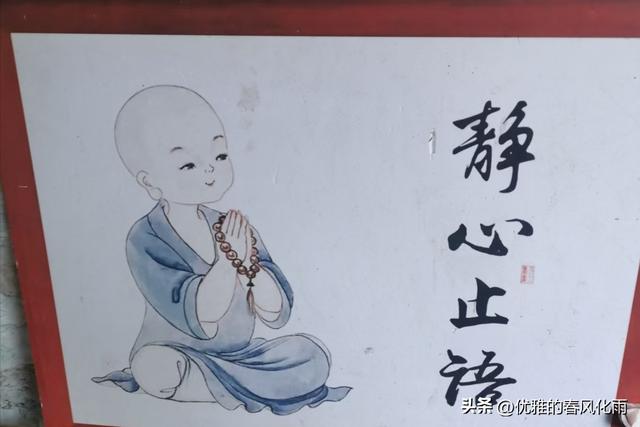 静心止语
头条 @优雅的春风化雨